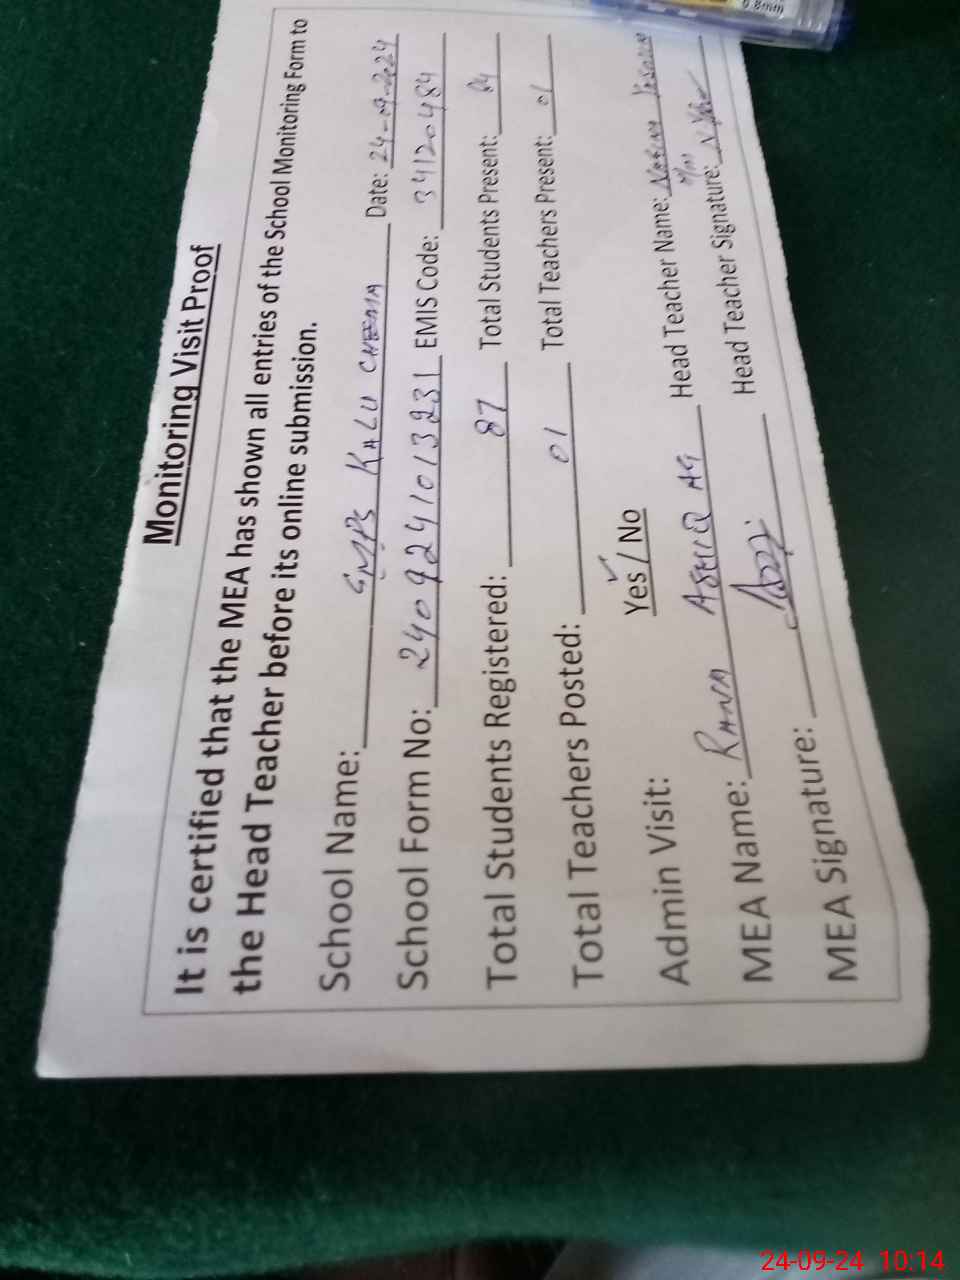 Monitoring Visit Proof
It is certified that the MEA has shown all entries of the School Monitoring Form to
the Head Teacher before its online submission.
School Name: GMPS KALU CHEEMA Date: 24-09-2024
School Form No: 2409241013231 EMIS Code: 34120484
Total Students Registered: 87 Total Students Present: 64
Total Teachers Posted: 01 Total Teachers Present: 01
Admin Visit: Yes / No
MEA Name: RANA ASHIQ Head Teacher Name:
MEA Signature: Head Teacher Signature:
0.8mm
24-09-24 10:14